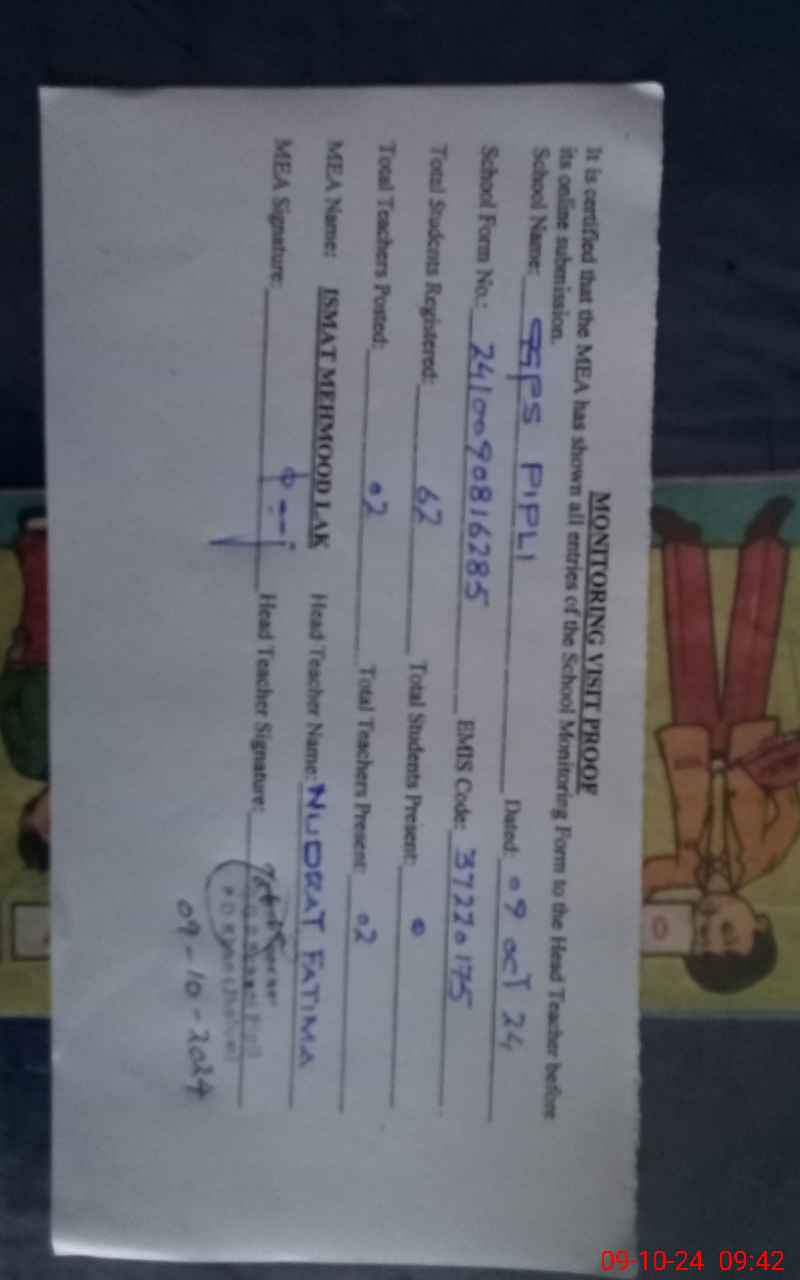 MONITORING VISIT PROOF
It is certified that the MEA has shown all entries of the School Monitoring Form to the Head Teacher before
its online submission.
School Name: GGPS PIPLI Dated: 09 OCT 24
School Form No.: 2410090816285 EMIS Code: 37220175
Total Students Registered: 62 Total Students Present: 0
Total Teachers Posted: 02 Total Teachers Present: 02
MEA Name: ISMAT MEHMOOD LAK Head Teacher Name: NUDRAT FATIMA
MEA Signature: Head Teacher Signature:
09-10-2024
09-10-24 09:42